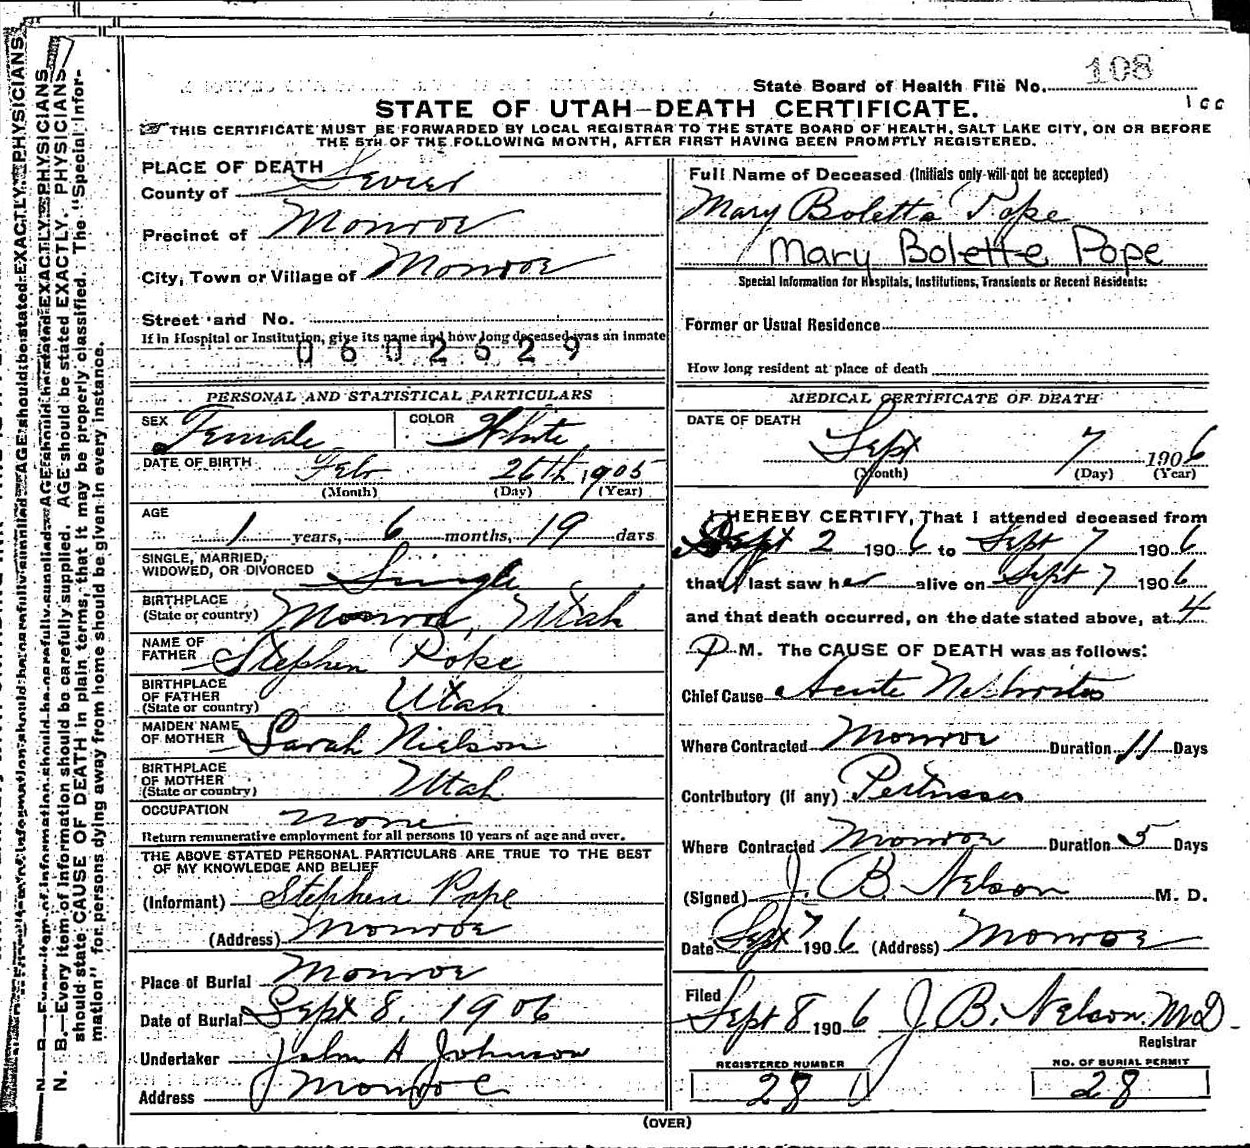 State Board of Health File No. 108
1 c c
STATE OF UTAH—DEATH CERTIFICATE.
THIS CERTIFICATE MUST BE FORWARDED BY LOCAL REGISTRAR TO THE STATE BOARD OF HEALTH, SALT LAKE CITY, ON OR BEFORE
THE 5TH OF THE FOLLOWING MONTH, AFTER FIRST HAVING BEEN PROMPTLY REGISTERED.
PLACE OF DEATH
County of Sevier
Precinct of Monroe
City, Town or Village of Monroe
Street and No.
If in Hospital or Institution, give its name and how long deceased was an inmate
0602629
PERSONAL AND STATISTICAL PARTICULARS
SEX Female COLOR White
DATE OF BIRTH Feb 26th, 1905
(Month) (Day) (Year)
AGE 1 years, 6 months, 19 days
SINGLE, MARRIED,
WIDOWED, OR DIVORCED Single
BIRTHPLACE
(State or country) Monroe, Utah
NAME OF
FATHER Stephen Pope
BIRTHPLACE
OF FATHER
(State or country) Utah
MAIDEN NAME
OF MOTHER Sarah Nielson
BIRTHPLACE
OF MOTHER
(State or country) Utah
OCCUPATION none
Return remunerative employment for all persons 10 years of age and over.
THE ABOVE STATED PERSONAL PARTICULARS ARE TRUE TO THE BEST
OF MY KNOWLEDGE AND BELIEF
(Informant) Stephen Pope
(Address) Monroe
Place of Burial Monroe
Date of Burial Sept 8, 1906
Undertaker John A Johnson
Address Monroe
Full Name of Deceased (Initials only will not be accepted)
Mary Boletta Pope
Mary Bolette Pope
Special Information for Hospitals, Institutions, Transients or Recent Residents:
Former or Usual Residence
How long resident at place of death
MEDICAL CERTIFICATE OF DEATH
DATE OF DEATH
Sept 7 1906
(Month) (Day) (Year)
I HEREBY CERTIFY, That I attended deceased from
Sept 2 1906 to Sept 7 1906
that I last saw her alive on Sept 7 1906
and that death occurred, on the date stated above, at 4
P M. The CAUSE OF DEATH was as follows:
Chief Cause Acute Nephritis
Where Contracted Monroe Duration 11 Days
Contributory (if any) Pertussis
Where Contracted Monroe Duration 5 Days
(Signed) J. B. Nelson M. D.
Date Sept 7 1906 (Address) Monroe
Filed
Sept 8 1906 J. B. Nelson. M.D.
Registrar
REGISTERED NUMBER
28
NO. OF BURIAL PERMIT
28
(OVER)
N. B.—Every item of information should be carefully supplied. AGE should be stated EXACTLY. PHYSICIANS
should state CAUSE OF DEATH in plain terms, that it may be properly classified. The "Special Infor-
mation" for persons dying away from home should be given in every instance.